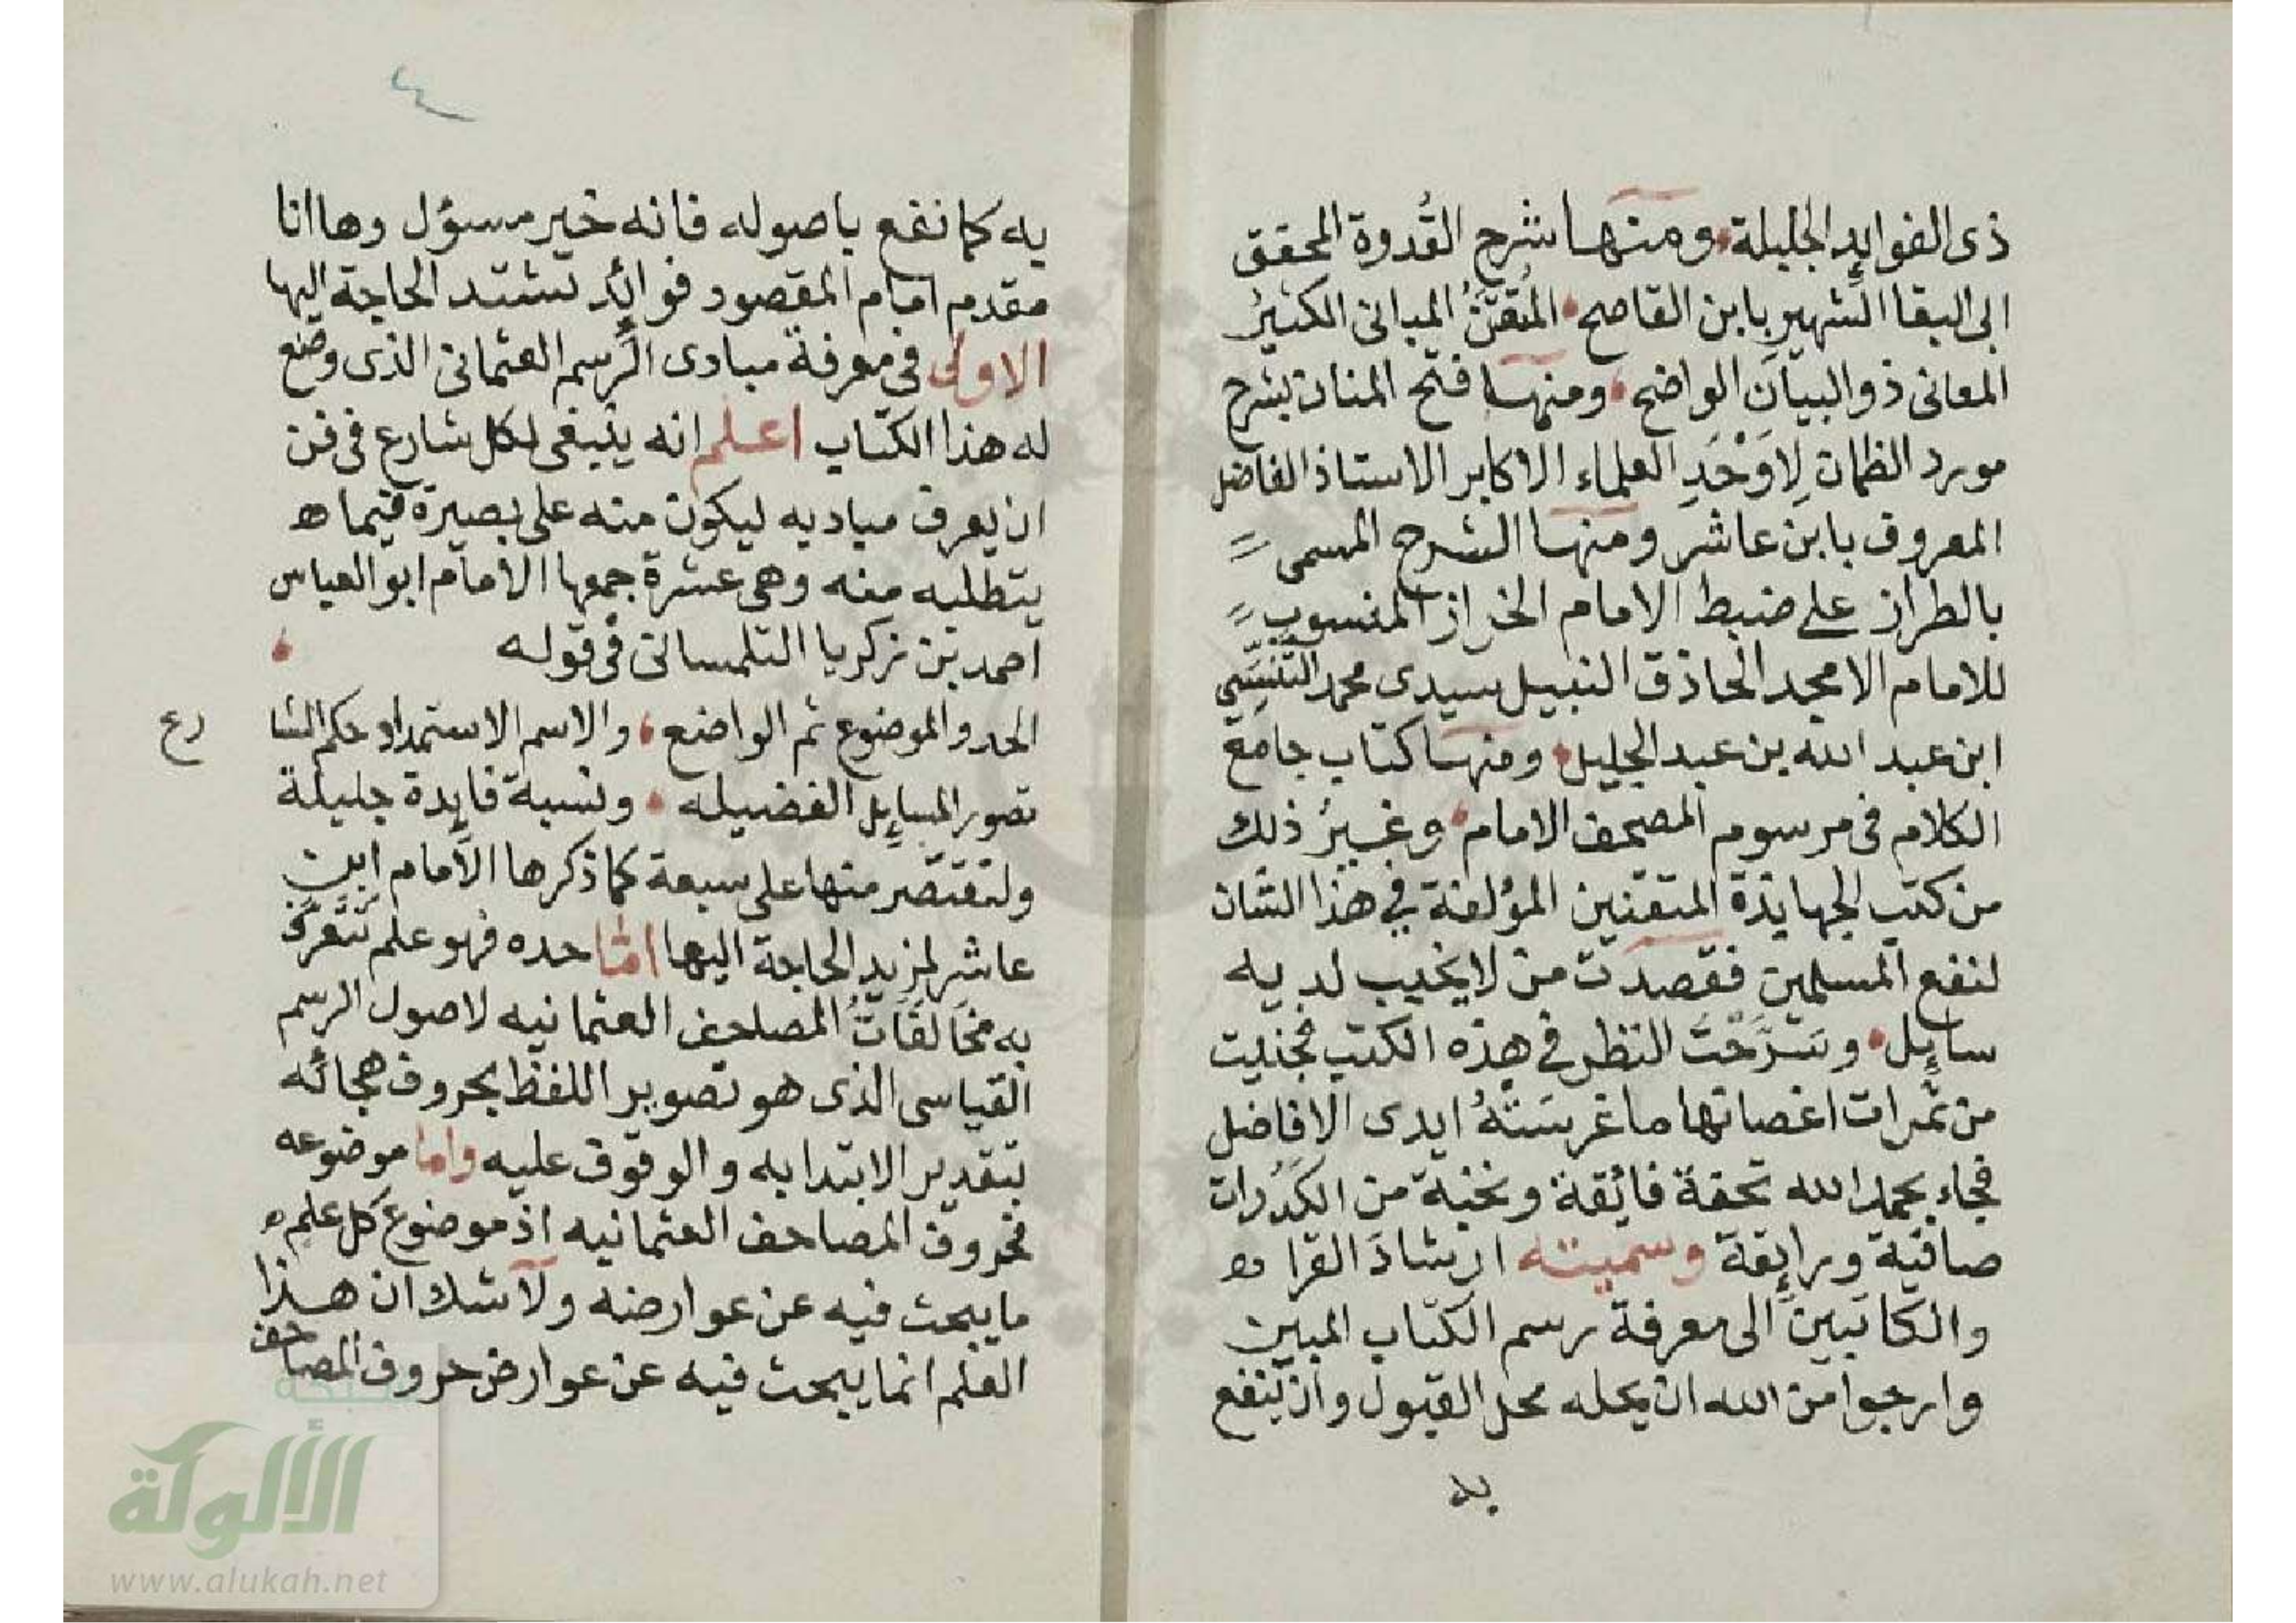 ذى الفوايد الجليلة ومنها شرح القُدوة المحقق
ابى البقا الشهير بابن القاصح المُتقَنُ المبانى الكثيرُ
المعانى ذو البيان الواضح ومنها فتح المنان بشرح
مورد الظمان لِاَوْحَدِ العلماء الاكابر الاستاذ الفاضل
المعروف بابن عاشر ومنها الشرح المسمى
بالطراز على ضبط الامام الخراز المنسوب
للامام الامجد الحاذق النبيل سيدى محمد التَّنَسِي
ابن عبد الله بن عبد الجليل ومنها كتاب جامع
الكلام فى مرسوم المصحف الامام وغيرُ ذلك
من كتب الجهابذة المتقنين المؤلفة فى هذا الشان
لنفع المسلمين فقصدت من لا يخيب لديه
سايل وسَرَّحْتُ النظر فى هذه الكتب فجنيت
من ثمرات اغصانها ما غرسَتْهُ ايدى الافاضل
فجاء بحمد الله تحفة فائقة ونخبة من الكدُرات
صافية ورايقة وسميته ارشادَ القرا
والكاتبين الى معرفة رسم الكتاب المبين
وارجوا من الله ان يحله محل القبول وان ينفع
به
٤
به كما نفع باصوله فانه خير مسؤل وها انا
مقدم امام المقصود فوائد تشتد الحاجة اليها
الاولى فى معرفة مبادى الرسم العثمانى الذى وضع
له هذا الكتاب اعلم انه ينبغى لكل شارع فى فن
ان يعرف مباديه ليكون منه على بصيرة فيما
يتطلبه منه وهى عشرة جمعها الامام ابو العباس
احمد بن زكريا التلمسانى فى قوله
الحد والموضوع ثم الواضع والاسم الاستمداد حكم الشا
رع
تصور المسايل الفضيله ونسبة فايدة جليلة
ولنقتصر منها على سبعة كما ذكرها الامام ابن
عاشر لمزيد الحاجة اليها امّا حده فهو علم تُعْرَفُ
به مخالفاتُ المصاحف العثمانيه لاصول الرسم
القياسى الذى هو تصوير اللفظ بحروف هجائه
بتقدير الابتدا به والوقوف عليه واما موضوعه
فحروف المصاحف العثمانيه اذ موضوع كل علم
ما يبحث فيه عن عوارضه ولا شك ان هذا
العلم انما يبحث فيه عن عوارض حروف المصاحف
شبكة
الألوكة
www.alukah.net